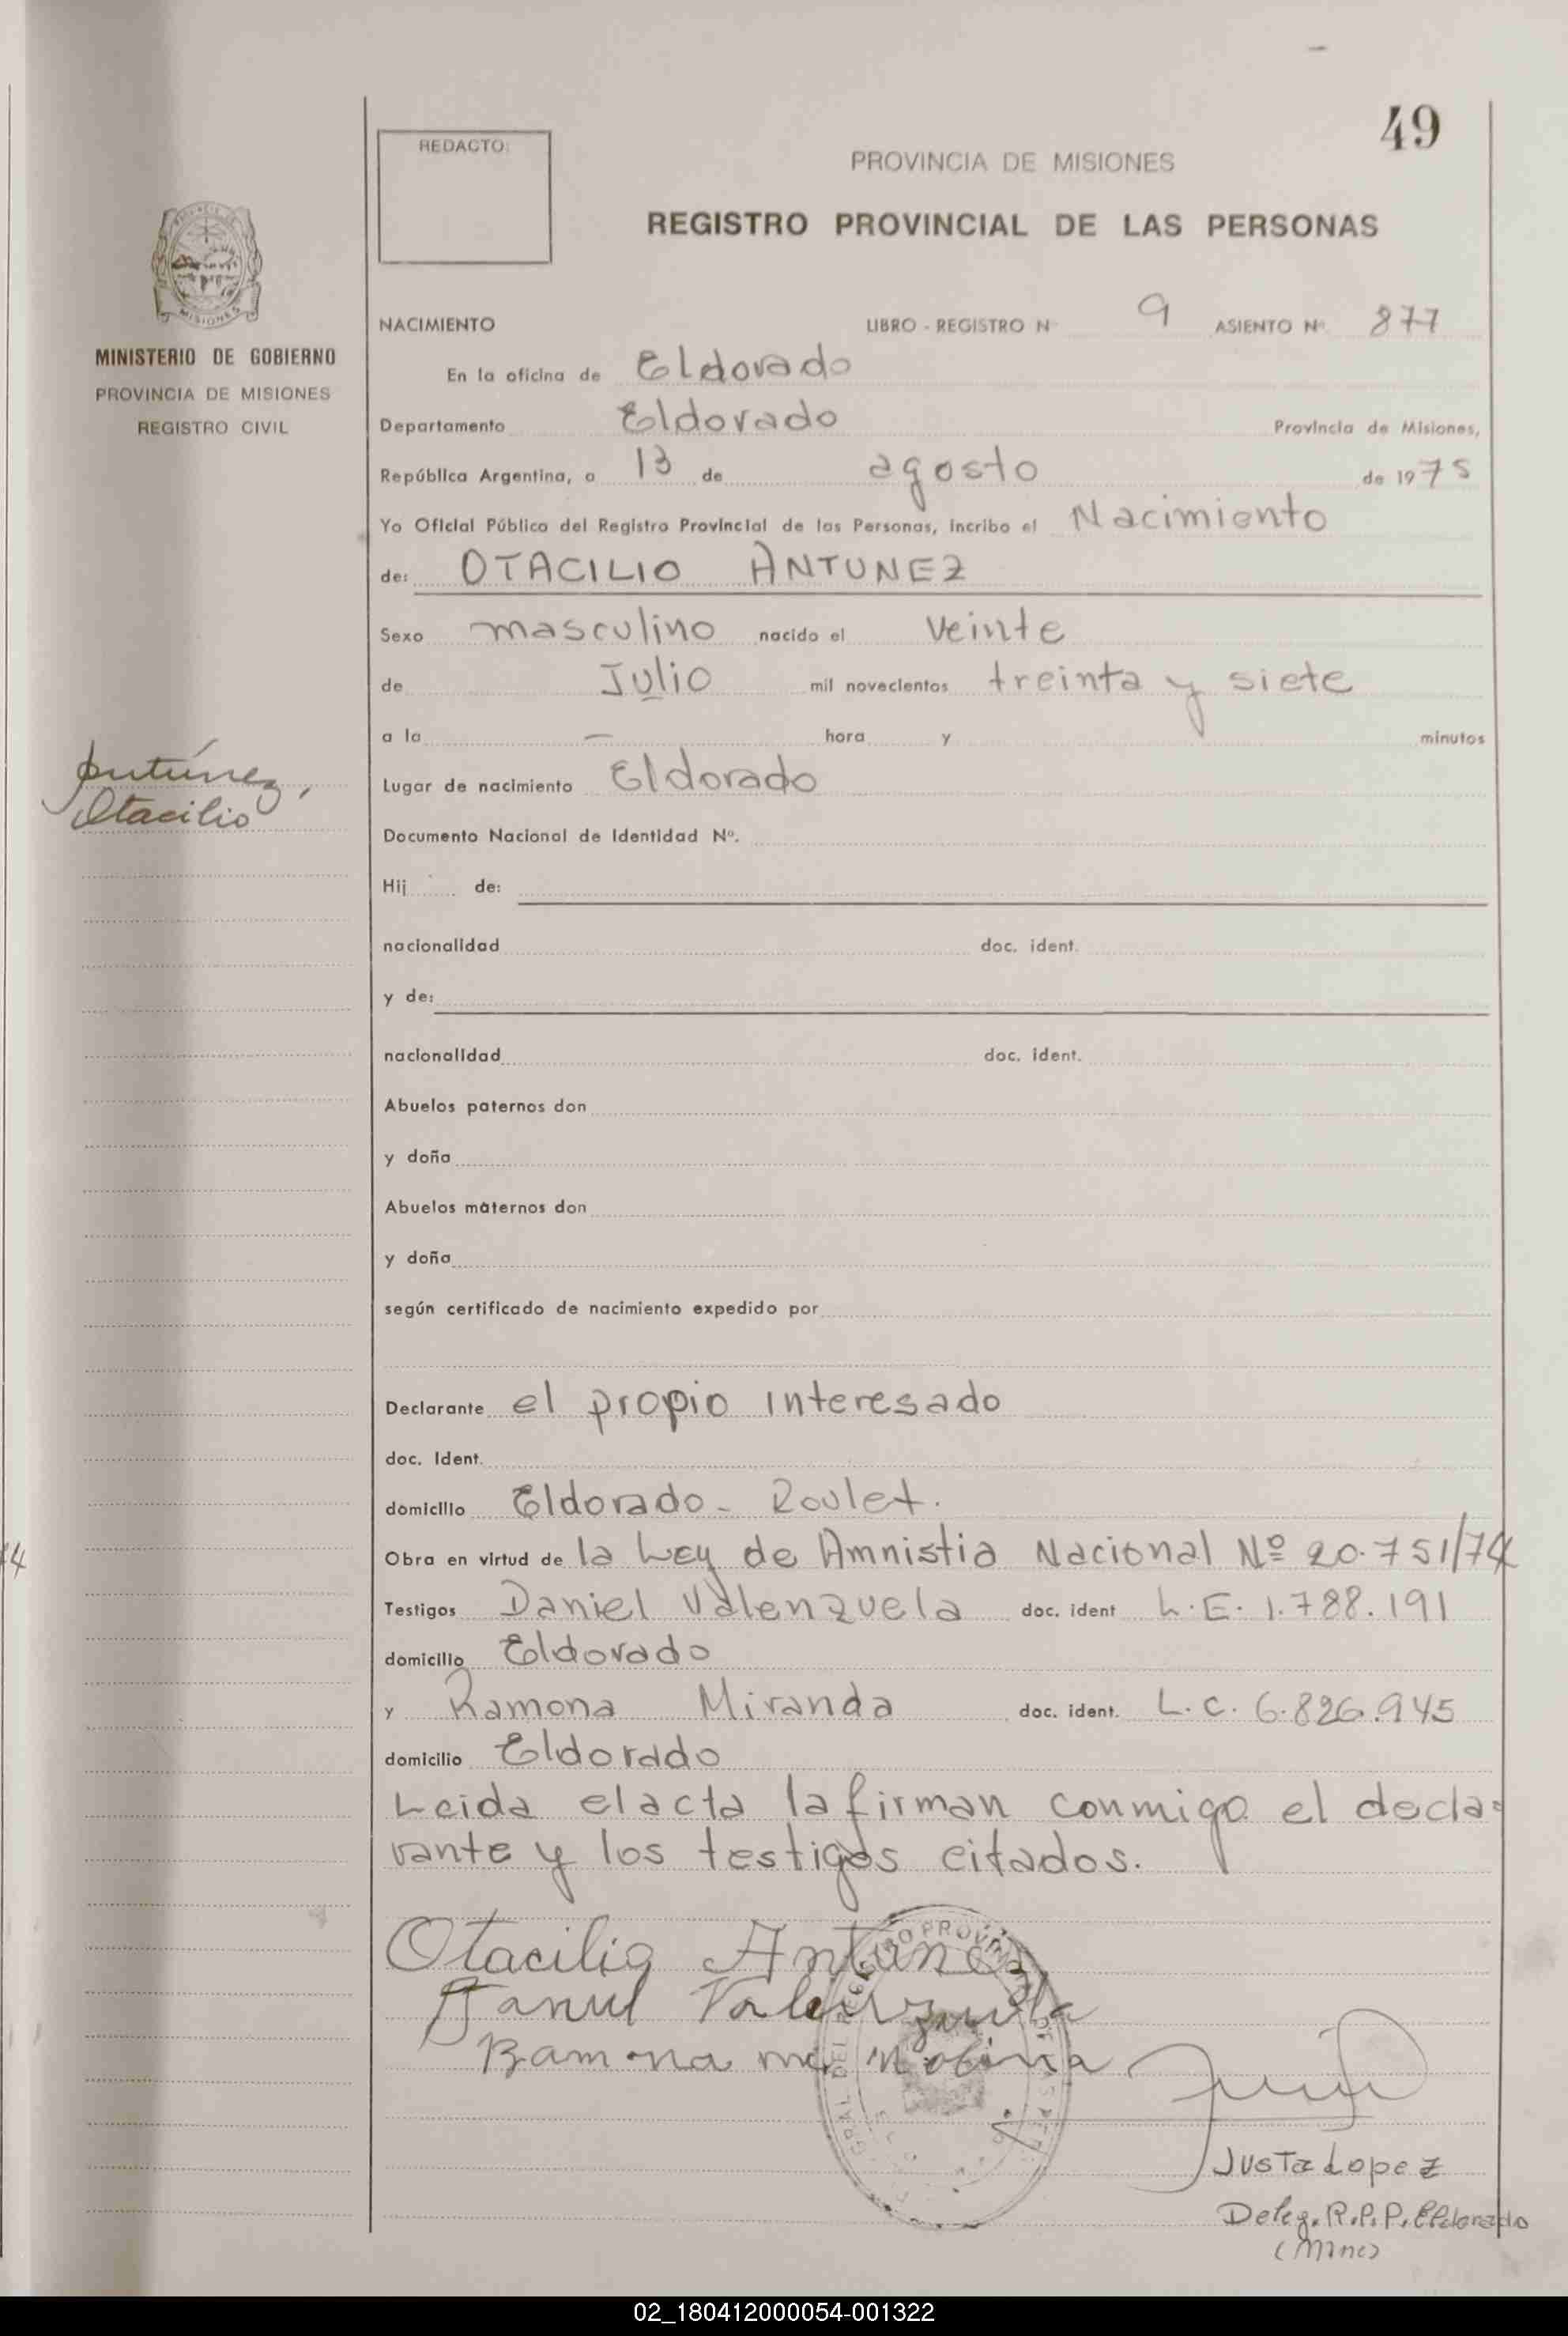 49
REDACTO:
PROVINCIA DE MISIONES
REGISTRO PROVINCIAL DE LAS PERSONAS
MISIONES
MINISTERIO DE GOBIERNO
PROVINCIA DE MISIONES
REGISTRO CIVIL
NACIMIENTO LIBRO - REGISTRO Nº 9 ASIENTO Nº 877
En la oficina de Eldorado
Departamento Eldorado Provincia de Misiones,
República Argentina, a 13 de agosto de 1975
Yo Oficial Público del Registro Provincial de las Personas, incribo el Nacimiento
de: OTACILIO ANTUNEZ
Sexo masculino nacido el veinte
de Julio mil novecientos treinta y siete
a la — hora y minutos
Antúnez,
Otacilio
Lugar de nacimiento Eldorado
Documento Nacional de Identidad Nº.
Hij de:
nacionalidad doc. ident.
y de:
nacionalidad doc. ident.
Abuelos paternos don
y doña
Abuelos maternos don
y doña
según certificado de nacimiento expedido por
Declarante el propio interesado
doc. Ident.
domicilio Eldorado - Roulet.
Obra en virtud de la Ley de Amnistia Nacional Nº 20.751/74
Testigos Daniel Valenzuela doc. ident L.E. 1.788.191
domicilio Eldorado
y Ramona Miranda doc. ident. L.C. 6.826.945
domicilio Eldorado
Leida el acta la firman conmigo el decla-
rante y los testigos citados.
Otacilio Antunez
Daniel Valenzuela
Ramona
Justa Lopez
Deleg. R.P.P. Eldorado
(Mnes)
02_180412000054-001322